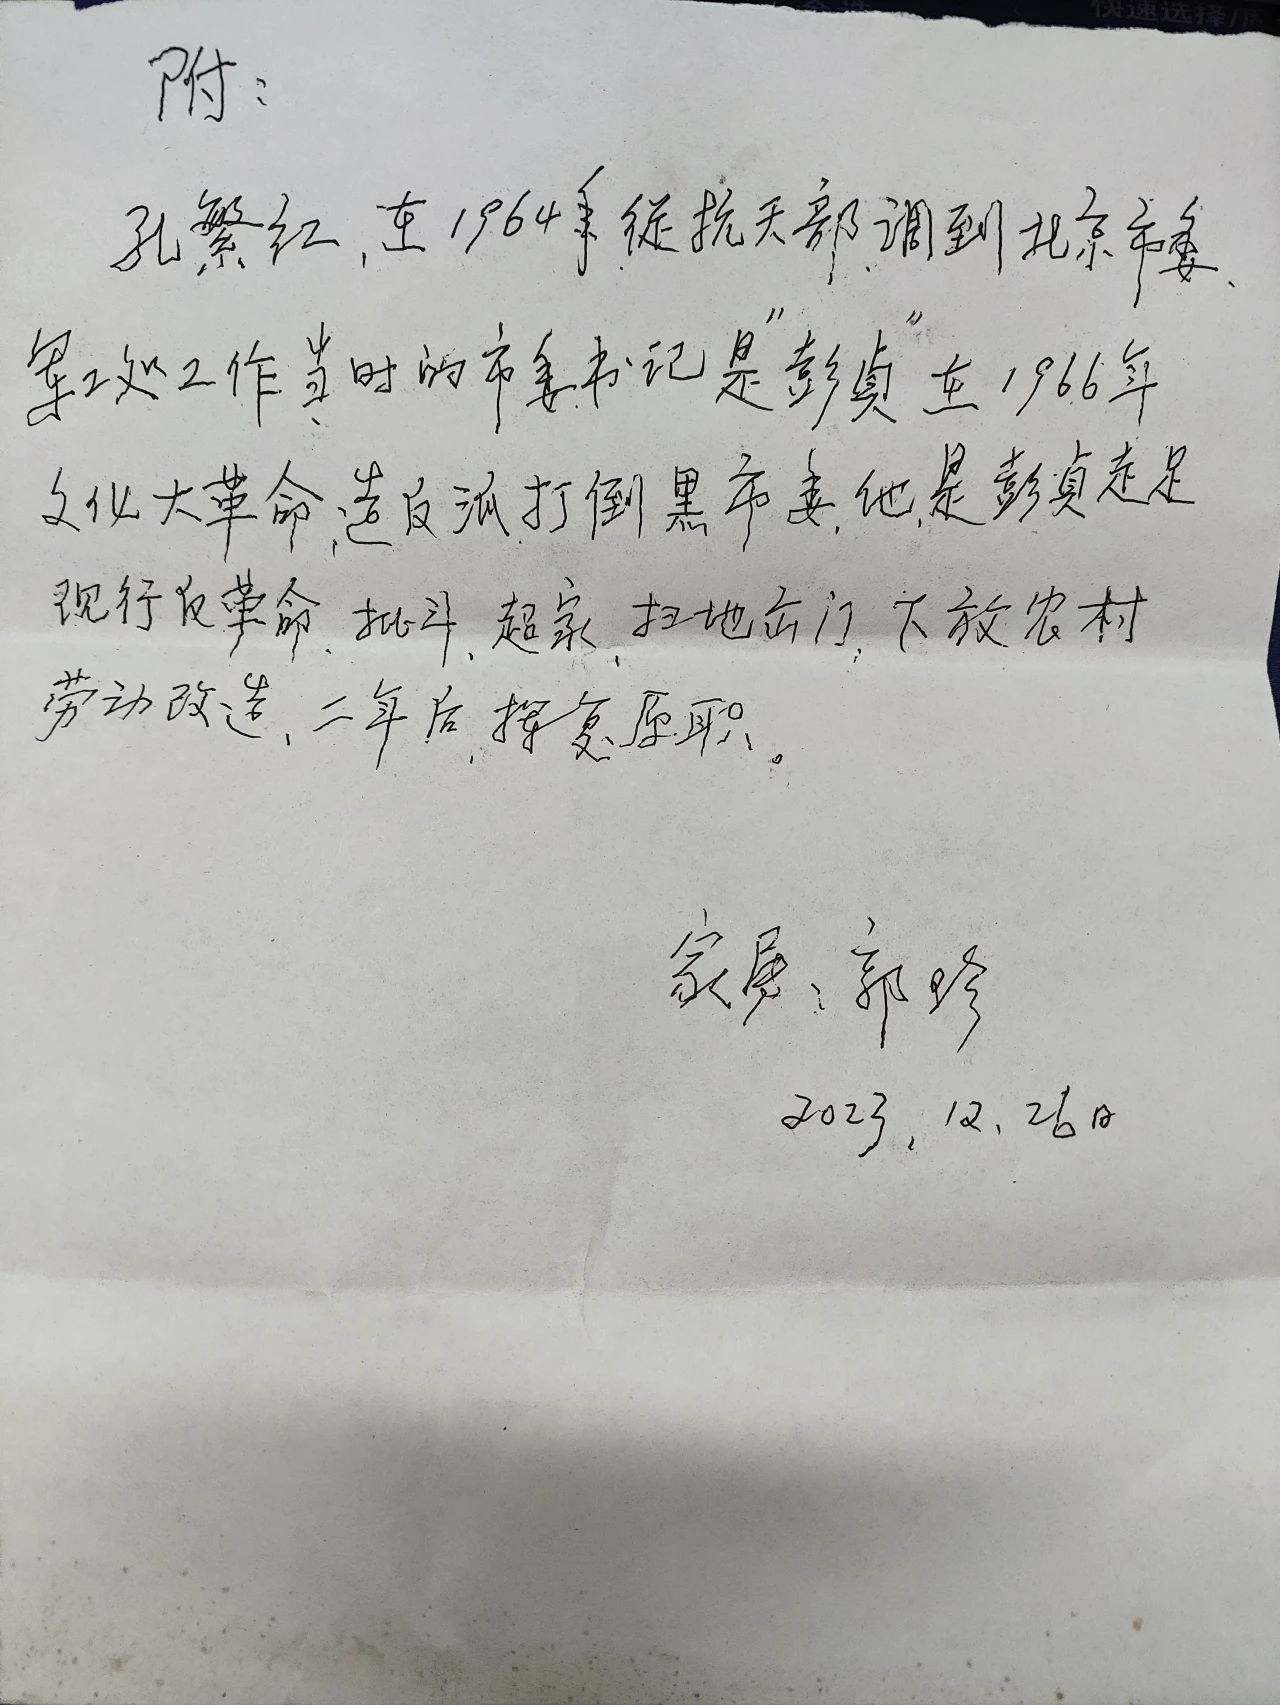 快速选择/
附：
孔繁红，在1964年从抗天部调到北京市委、
军工处工作当时的市委书记是"彭贞"在1966年
文化大革命，造反派打倒黑市委，他是彭贞走足
现行反革命、批斗，超家，扫地出门，下放农村
劳动改造，二年后，挥复原职。
家属：郭珍
2023.12.26日